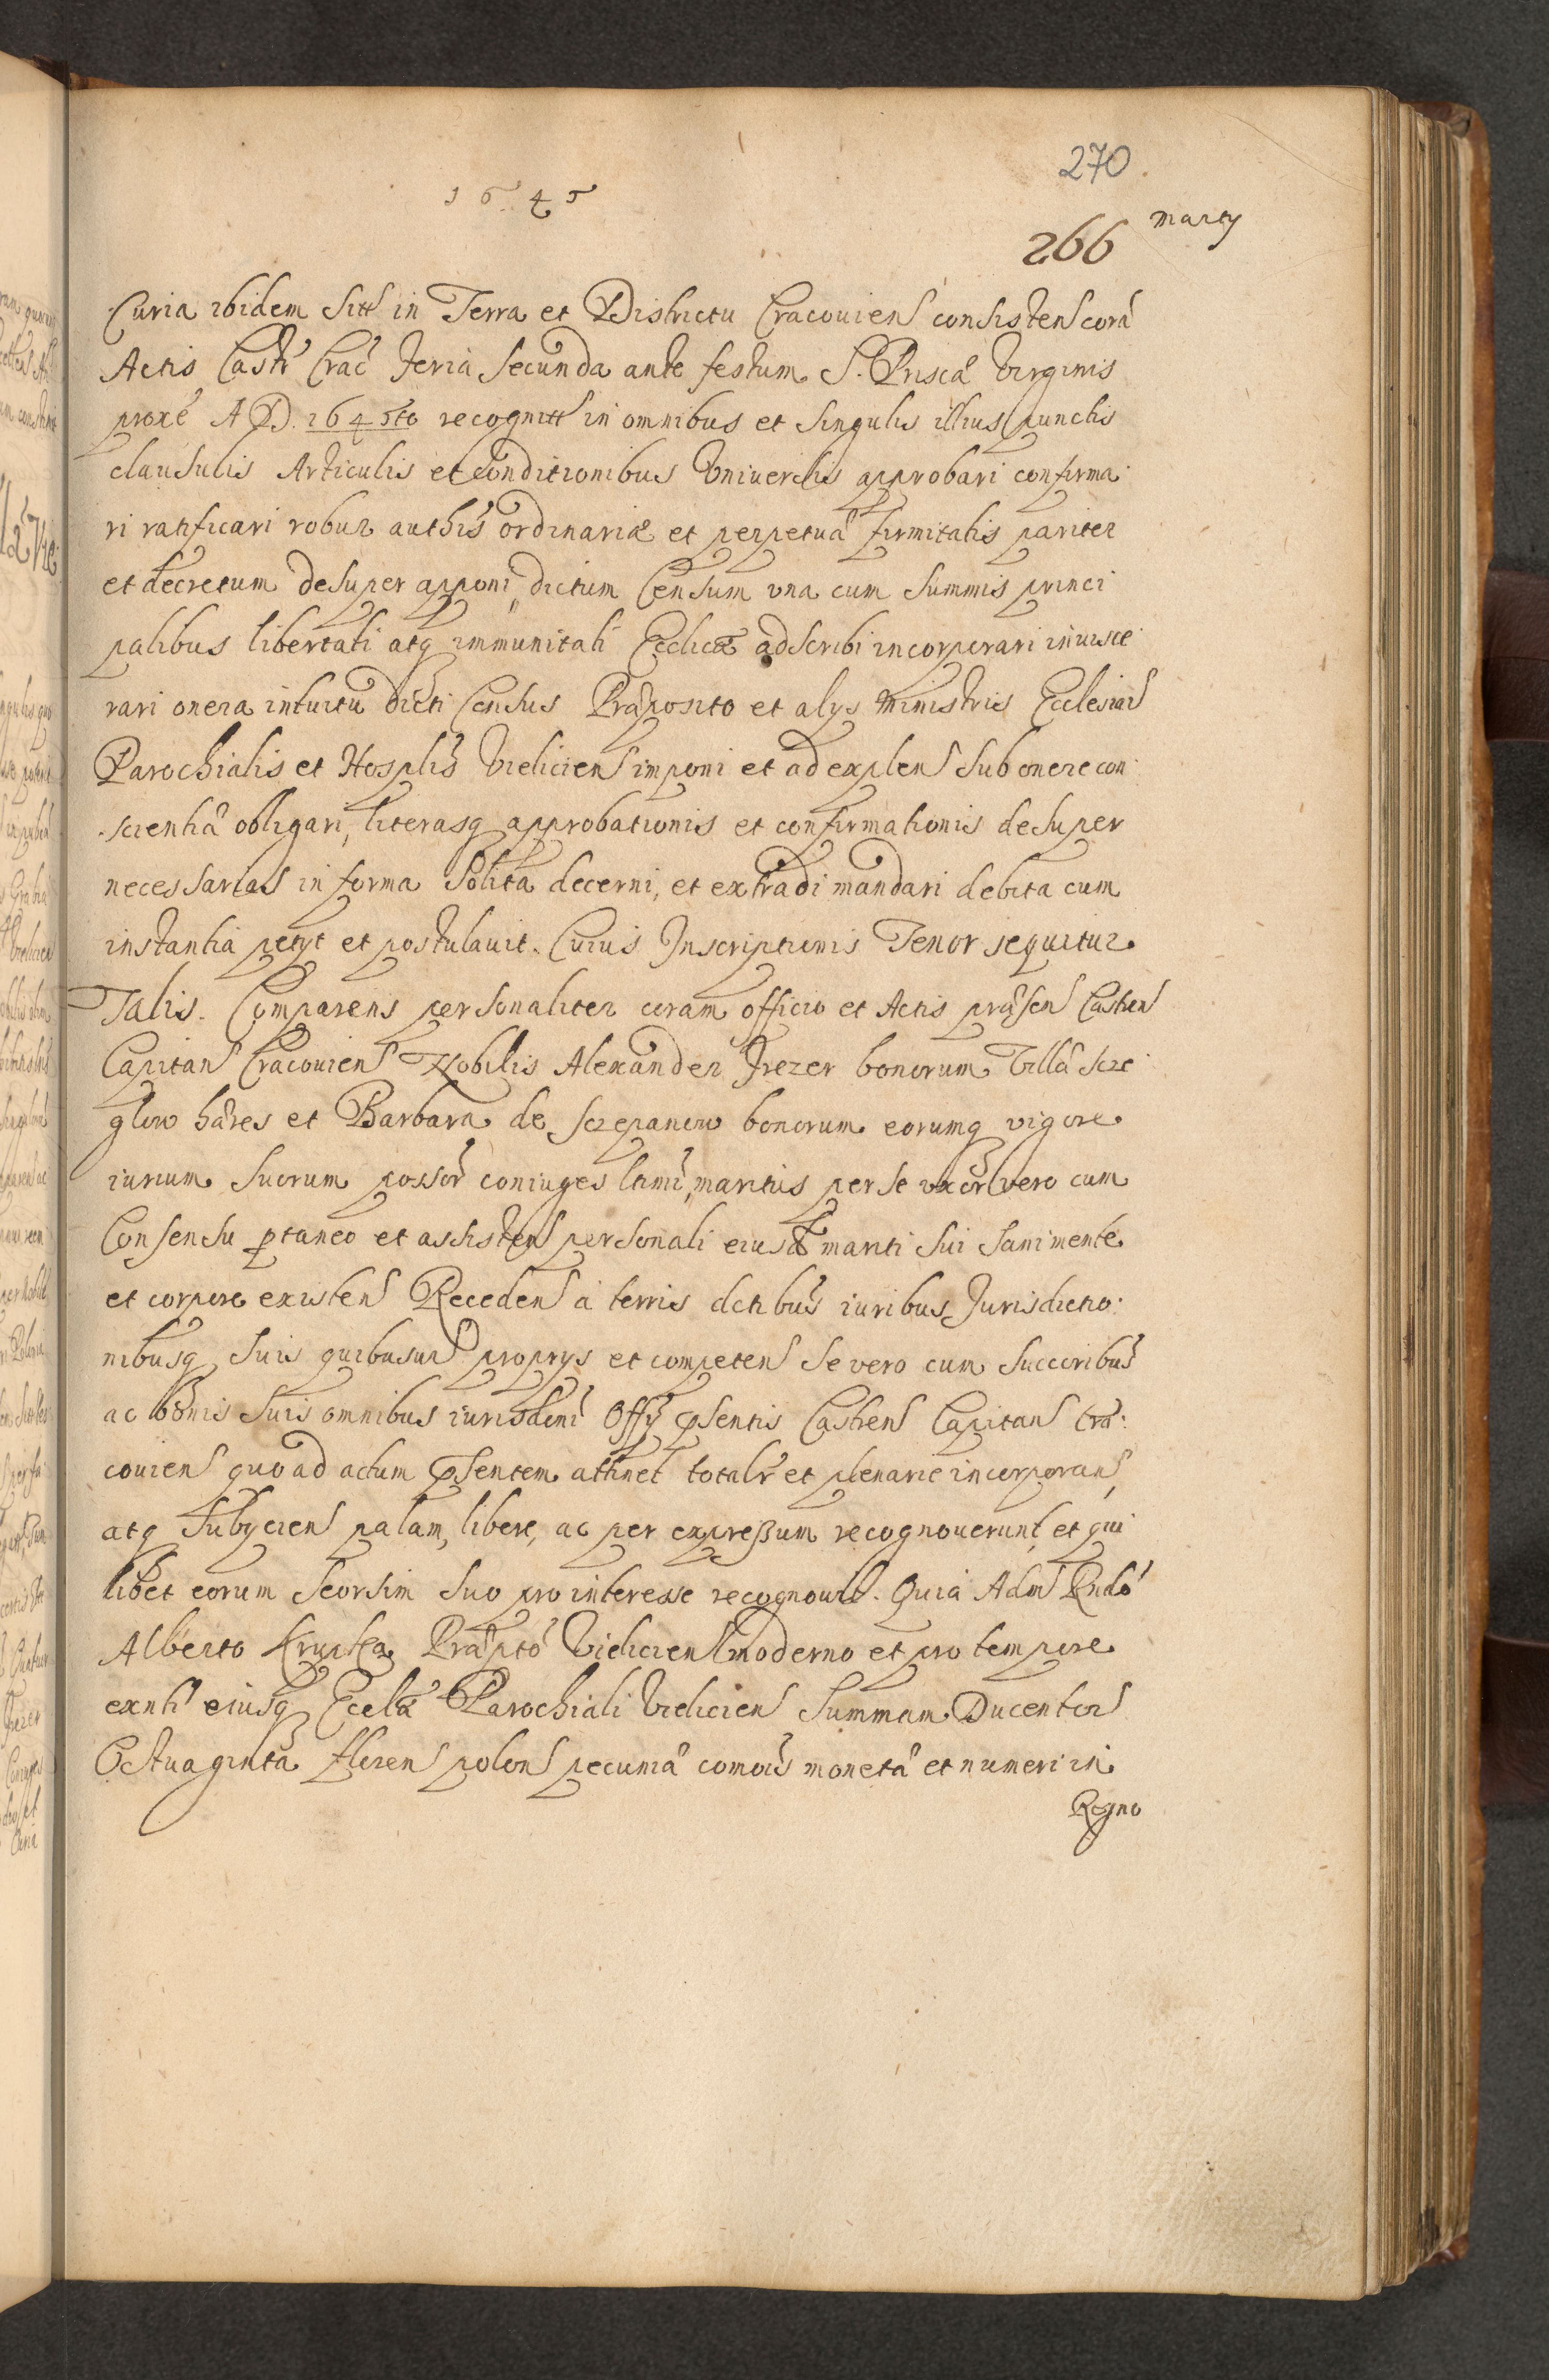 270
1645
266 marty
Curia ibidem sitt in Terra et Districtu Cracouiens consistens corā
Actis Castr Crac feria secunda ante festum S. Priscæ Virginis
proxe A D. 1645to recognitt in omnibus et singulis illius punctis
clausulis Articulis et conditionibus Vniuersis approbari confirma
ri ratificari robur authis ordinariæ et perpetuæ firmitatis pariter
et decretum desuper apponi, dictum Censum vna cum summis princi
palibus libertati atq immunitati Ecclicæ adscribi incorporari inuisce
rari onera intuitu dicti Census Præposito et alys ministris Ecclesiae
Parochialis et Hosplis Vieliciens imponi et ad explens sub onere con
scientiæ obligari, literasq approbationis et confirmationis desuper
necessarias in forma solita decerni, et extradi mandari debita cum
instantia petyt et postulauit. Cuius Inscriptionis Tenor sequitur
Talis. Comparens personaliter coram officio et Actis præsen Castren
Capitan Cracouien Nobilis Alexander Frezer bonorum Villæ Scze
glow hæres et Barbara de Sczepanow bonorum eorumq vigore
iurium suorum possor coniuges ltimi, maritus per se vxor vero cum
Consensu ptaneo et assisten personali eiusd mariti sui sani mente
et corpore existen Receden a terris dctibus iuribus Jurisdictio
nibusq suis quibusuis proprys et competen se vero cum succoribus
ac bonis suis omnibus iurisdeni Offy psentis Castren Capitan Cra
couien quoad actum psentem attinet totalr et plenarie incorporan,
atq subycien palam, libere, ac per expreßum recognouerunt, et qui
libet eorum seorsim suo pro interesse recognouit. Quia Adm Rndo
Alberto Krupka Præpto Vielicien moderno et pro tempore
exnti eiusq Ecclæ Parochiali Vielicien Summam Ducentor
Octuaginta floren polon pecuniæ comois monetæ et numeri in
Regno